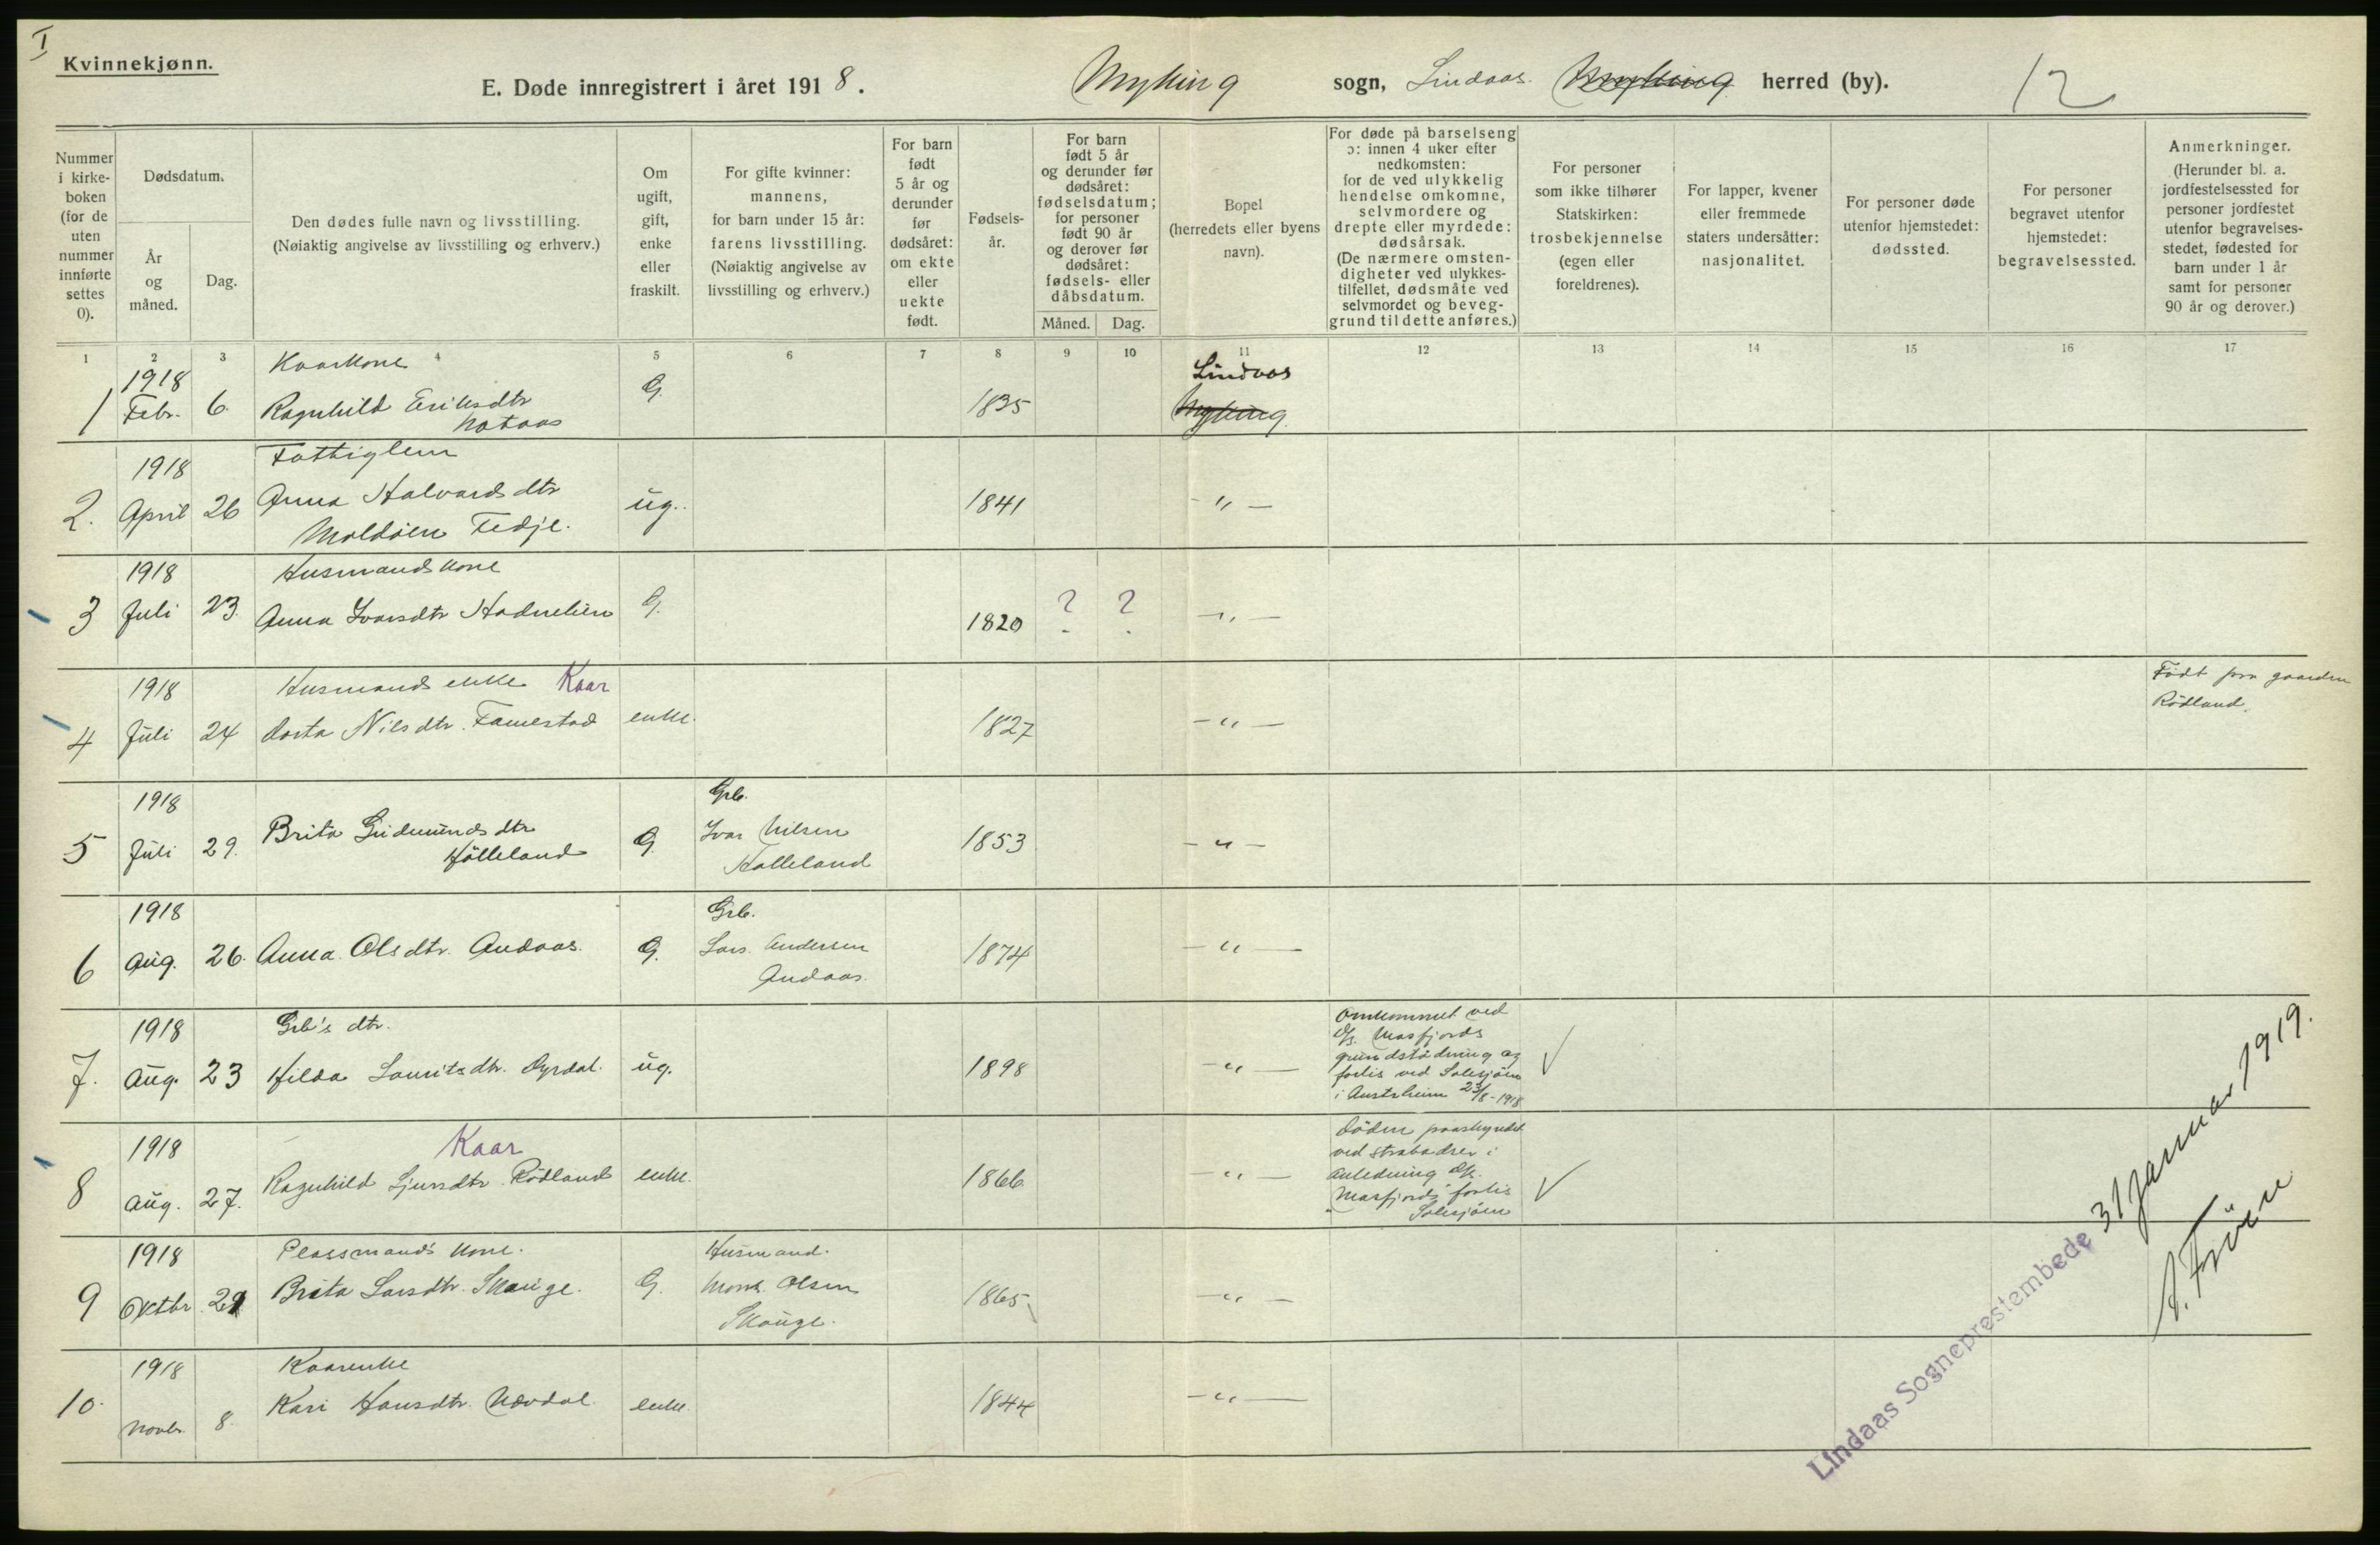 I
Kvinnekjønn.
E. Døde innregistrert i året 1918. Myking sogn, Lindaas Myking herred (by). 12
Nummer i kirke-boken (for de uten nummer innførte settes 0).
Dødsdatum.
År og måned.
Dag.
Den dødes fulle navn og livsstilling.
(Nøiaktig angivelse av livsstilling og erhverv.)
Om ugift, gift, enke eller fraskilt.
For gifte kvinner: mannens, for barn under 15 år: farens livsstilling.
(Nøiaktig angivelse av livsstilling og erhverv.)
For barn født 5 år og derunder før dødsåret: om ekte eller uekte født.
Fødsels-år.
For barn født 5 år og derunder før dødsåret: fødselsdatum; for personer født 90 år og derover før dødsåret: fødsels- eller dåbsdatum.
Måned.
Dag.
Bopel (herredets eller byens navn).
For døde på barselseng ɔ: innen 4 uker efter nedkomsten: for de ved ulykkelig hendelse omkomne, selvmordere og drepte eller myrdede: dødsårsak.
(De nærmere omsten-digheter ved ulykkes-tilfellet, dødsmåte ved selvmordet og beveg-grund til dette anføres.)
For personer som ikke tilhører Statskirken: trosbekjennelse (egen eller foreldrenes).
For lapper, kvener eller fremmede staters undersåtter: nasjonalitet.
For personer døde utenfor hjemstedet: dødssted.
For personer begravet utenfor hjemstedet: begravelsessted.
Anmerkninger.
(Herunder bl. a. jordfestelsessted for personer jordfestet utenfor begravelses-stedet, fødested for barn under 1 år samt for personer 90 år og derover.)
1 2 3 4 5 6 7 8 9 10 11 12 13 14 15 16 17
1 1918 Febr. 6. Kaarkone Ragnhild Eriksdtr Nataas G. 1835 Lindaas Myking
2. 1918 April 26 Fattiglem Anna Halvardsdtr Moldöen Fedje. ug. 1841 - " -
3 1918 Juli 23 Husmandskone Anna Ivarsdtr Hadnelien G. 1820 ? ? - " -
4 1918 Juli 24 Husmands enke Kaar Dorta Nilsdtr. Famestad enke. 1827 - " - Födt paa gaarden Rödland.
5 1918 Juli 29. Brita Gudmundsdtr Hölleland G. Grb. Ivar Nilsen Hölleland 1853 - " -
6 1918 Aug. 26. Anna Olsdtr. Andaas. G. Grb. Lars Andersen Andaas. 1874 - " -
7. 1918 Aug. 23 Grb's dtr. Hilda Lauritsdtr. Dyrdal. ug. 1898 - " - Omkommet ved D/S. Masfjords grundstödning og forlis ved Solesjöen i Austrheim 23/8-1918 ✓
8 1918 Aug. 27. Kaar Ragnhild Sjursdtr Rödland enke. 1866 - " - Döden paaskyndet ved strabadser i anledning D/S. Masfjords forlis Solesjöen ✓
9 1918 Oktbr 29 Plassmands kone. Brita Larsdtr. Skauge. G. Husmand. Mons Olsen Skauge. 1865 - " -
10. 1918 Novbr. 8. Kaarenke Kari Hansdtr. Nævdal. enke. 1844 - " -
Lindaas Sogneprestembede 31 januar 1919.